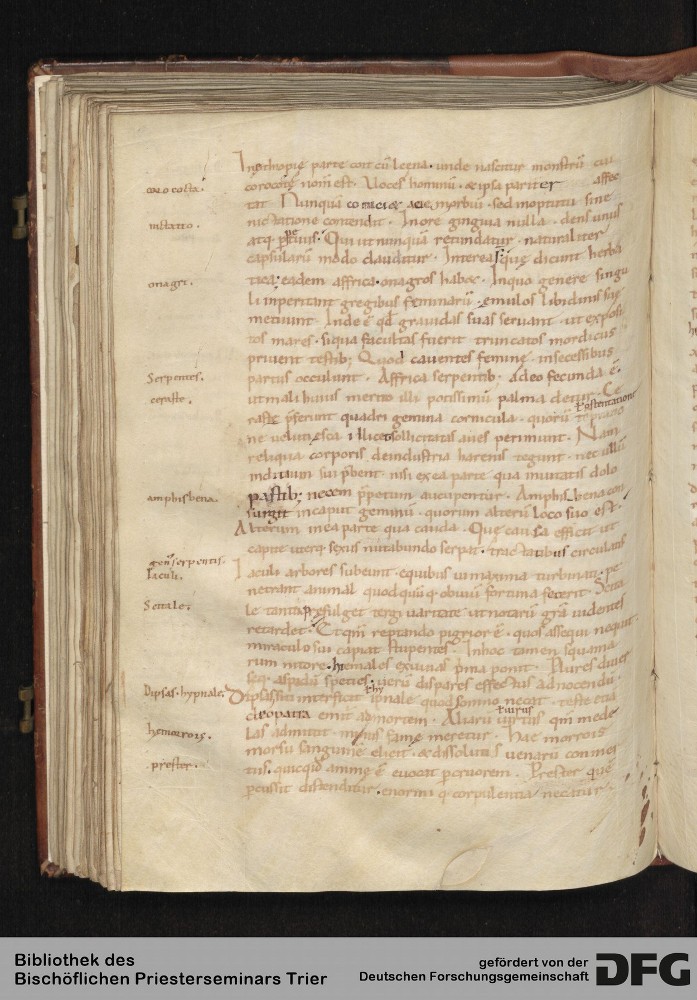 parte coit cū leena. unde nascitur monstrū cui
corocotta.
nom̄ est. Voces hominū. & ipsa pariter affec
tat Nunquā aciē morbū. sed in optutu sine
nictatione contendit. In ore gingiua nulla. dens unus
atq. Qui ut nunquā retundatur. naturaliter
capsularū modo clauditur. Interea quę dicunt herba
onagri.
eadem affrica onagros habet. In quo genere singu
li inperitant gregibus feminarū. emulos libidinis suę
metuunt. Inde ē qđ grauidas suas seruant. ut exposi
tos mares. siqua facultas fuerit truncatos mordicus
priuent testib; Quod cauentes feminę in secessibus
Serpentes.
partus occulunt. Affrica serpentib; adeo fecunda ē.
ceraste.
ut mali huius merito illi potissimū palma detur. Ce
ostentatione
raste p̄ferunt quadri gemina cornicula. quorū
ne ueluti esca illice sollicitatas aues perimunt. Nam
reliqua corporis de industria harenis tegunt. nec ullū
indicium sui p̄bent. nisi ex ea parte qua inuitatis dolo
amphisbena.
pastib; necem p̄petum aucupentur. Amphisbena con
surgit in caput geminū. quorum alterū loco suo est.
Alterum in ea parte qua cauda. Que causa efficit ut
capite utroq; sexus nitabundo serpat. tractatibus circulatis
serpentis.
Iaculi.
Iaculi arbores subeunt. e quibus ui maxima turbinati. pe
netrant animal quodcumq; obuiū fortuna fecerit. Scita
Scitale.
le tanta prefulget tergi uarietate ut notarū grā uidentes
retardet. Et qm̄ reptando pigrior ē. quos assequi nequit
miraculo sui capiat stupentes. In hoc tamen squama
rum nitore. hiemales exuuias p̄ma ponit. Plures diuer
seq. aspidū species. uerū dispares effectus ad nocendū.
Dipsas. hypnale.
Dipsas siti interficit ipnale quod somno necat. teste etiā
uirus
cleopatra emit ad mortem. Aliarū uirtus qm̄ mede
hemorrois.
las admittit. minus famę meretur. Hae morrois
morsu sanguinē elicit. & dissolutis uenarū conmea
prester.
tus. quicquid animę ē euocat per cruorem. Prester quē
percussit distenditur. enormi q. corpulentia necatur.
Bibliothek des
Bischöflichen Priesterseminars Trier
gefördert von der
Deutschen Forschungsgemeinschaft
DFG